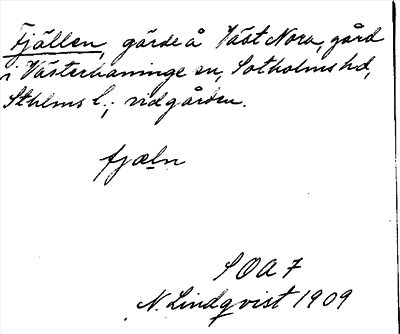 Fjällen, gärde å Väst Nora, gård
i Västerhaninge sn, Sotholms hd,
Sthlms l.; vid gården.
fjæln
SOA 7
N. Lindqvist 1909